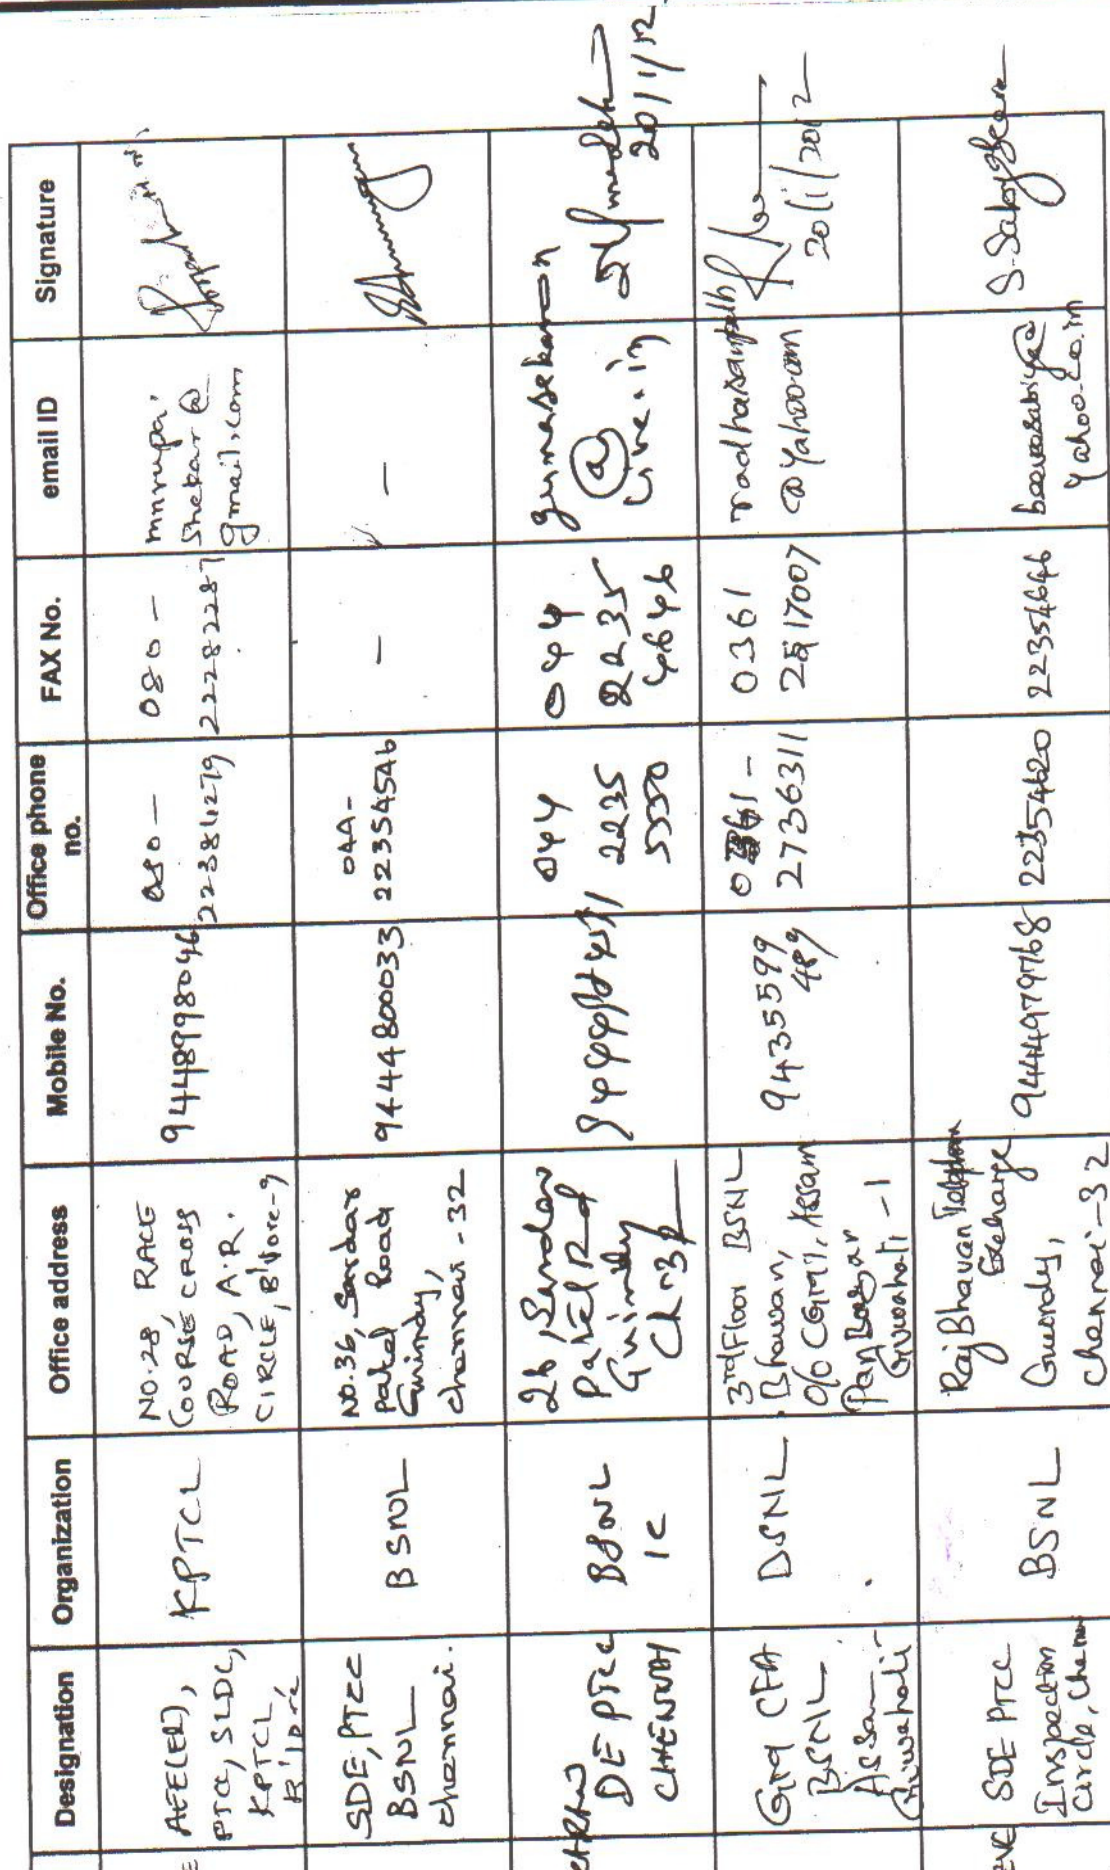 Designation
Organization
Office address
Mobile No.
Office phone
no.
FAX No.
email ID
Signature
AEE(EL),
PTCC, SLDC,
KPTCL,
B'lore
KPTCL
NO.28, RACE
COURSE CROSS
ROAD, A.R.
CIRCLE, B'lore-9
9448998046
080-
22384279
080-
22282287
mnrupa.
shekar@
gmail.com
SDE, PTCC
BSNL
Chennai.
BSNL
NO.36, Sardar
patel Road
Guindy,
chennai-32
9444800033
044-
22354546
-
-
DE PTCC
CHENNAI
BSNL
IC
26, Sardar
Patel Rd
Guindy
Ch-32
044
2235
5550
044
2235
4646
gunasekaran
@
live.in
20/1/12
GM CFA
BSNL
Assam
Guwahati
BSNL
3rd Floor BSNL
Bhawan,
O/O CGMT, Assam
Pan Bazar
Guwahati-1
94355 99
489
0361-
2736311
0361
2517007
@yahoo.com
20/1/2012
SDE PTCC
Inspection
Circle, Chennai
BSNL
Raj Bhavan Telephone
Exchange
Guindy,
Chennai-32
9444979768
22354620
22354646
beevasabiya@
yahoo.co.in